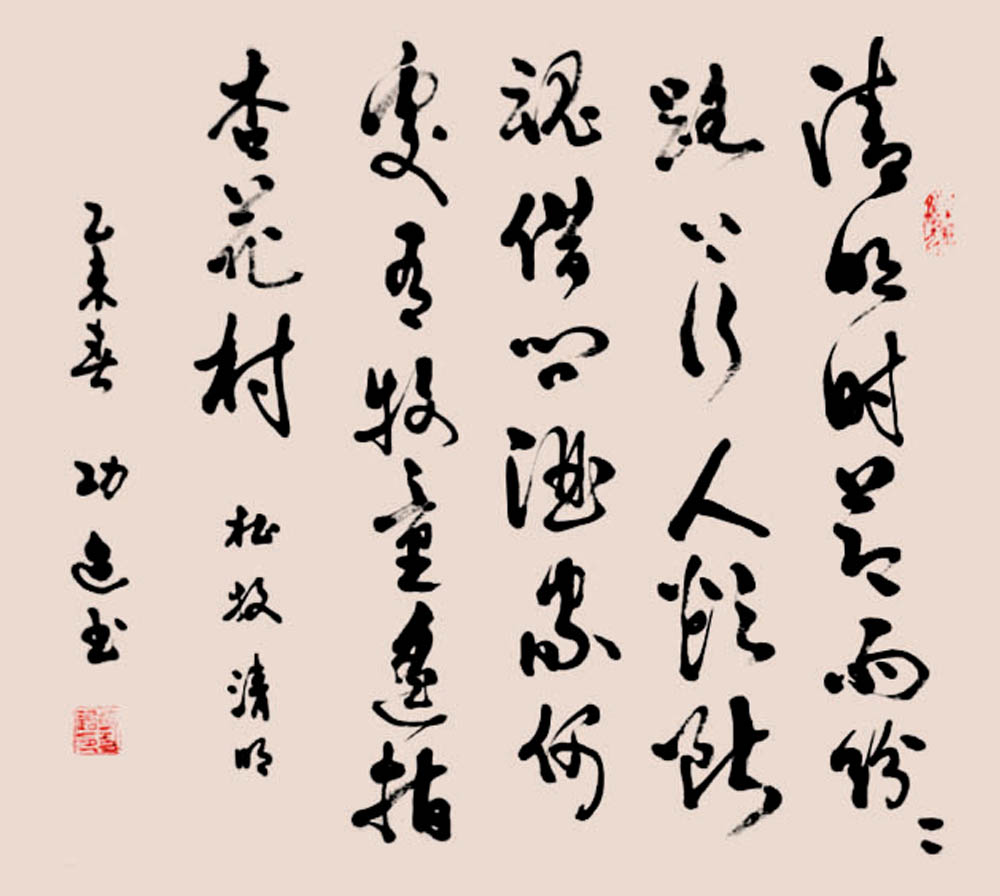 清明时节雨纷々
路上行人欲断
魂借问酒家何
处有牧童遥指
杏花村 杜牧清明
乙未春 功书